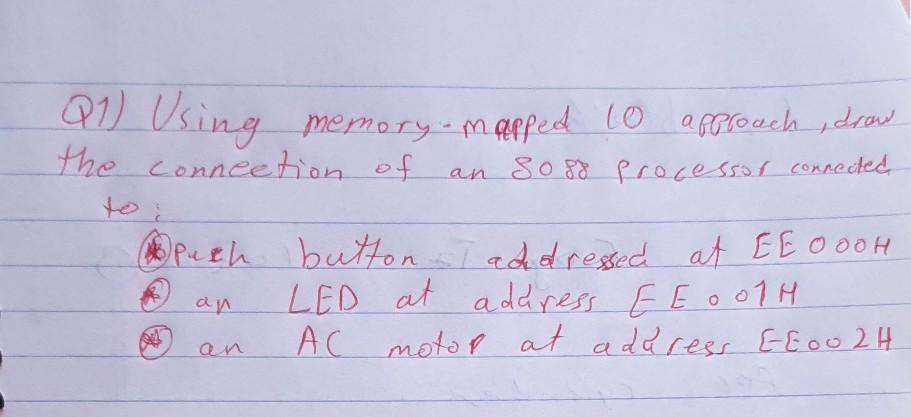 Q1) Using memory-mapped IO approach, draw
the connection of an 8088 processor connected
to:
push button addressed at EE000H
an LED at address EE001H
an AC motor at address EE002H